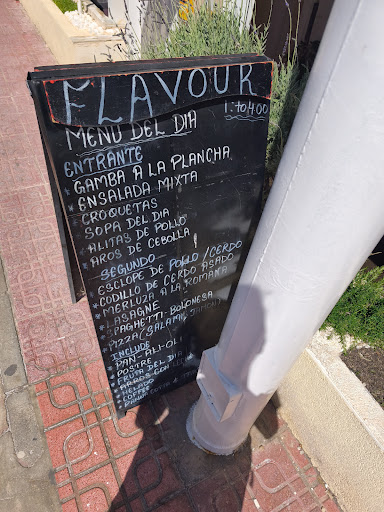 FLAVOUR
MENU DEL DIA
1:TO4:00
ENTRANTE
* GAMBA A LA PLANCHA
* ENSALADA MIXTA
* CROQUETAS
* SOPA DEL DIA
* ALITAS DE POLLO
* AROS DE CEBOLLA
SEGUNDO
* ESCLOPE DE POLLO/CERDO
* CODILLO DE CERDO ASADO
* MERLUZA A LA ROMANA
* LASAGNE
* SPAGHETTI-BOLOGNESA
* PIZZA (SALAMI, JAMON)
INCLUDE
* PAN-ALI-OLI
* POSTRE
* FRUTA DEL DIA
* ARROS CON
* HELADO
* COFFEE